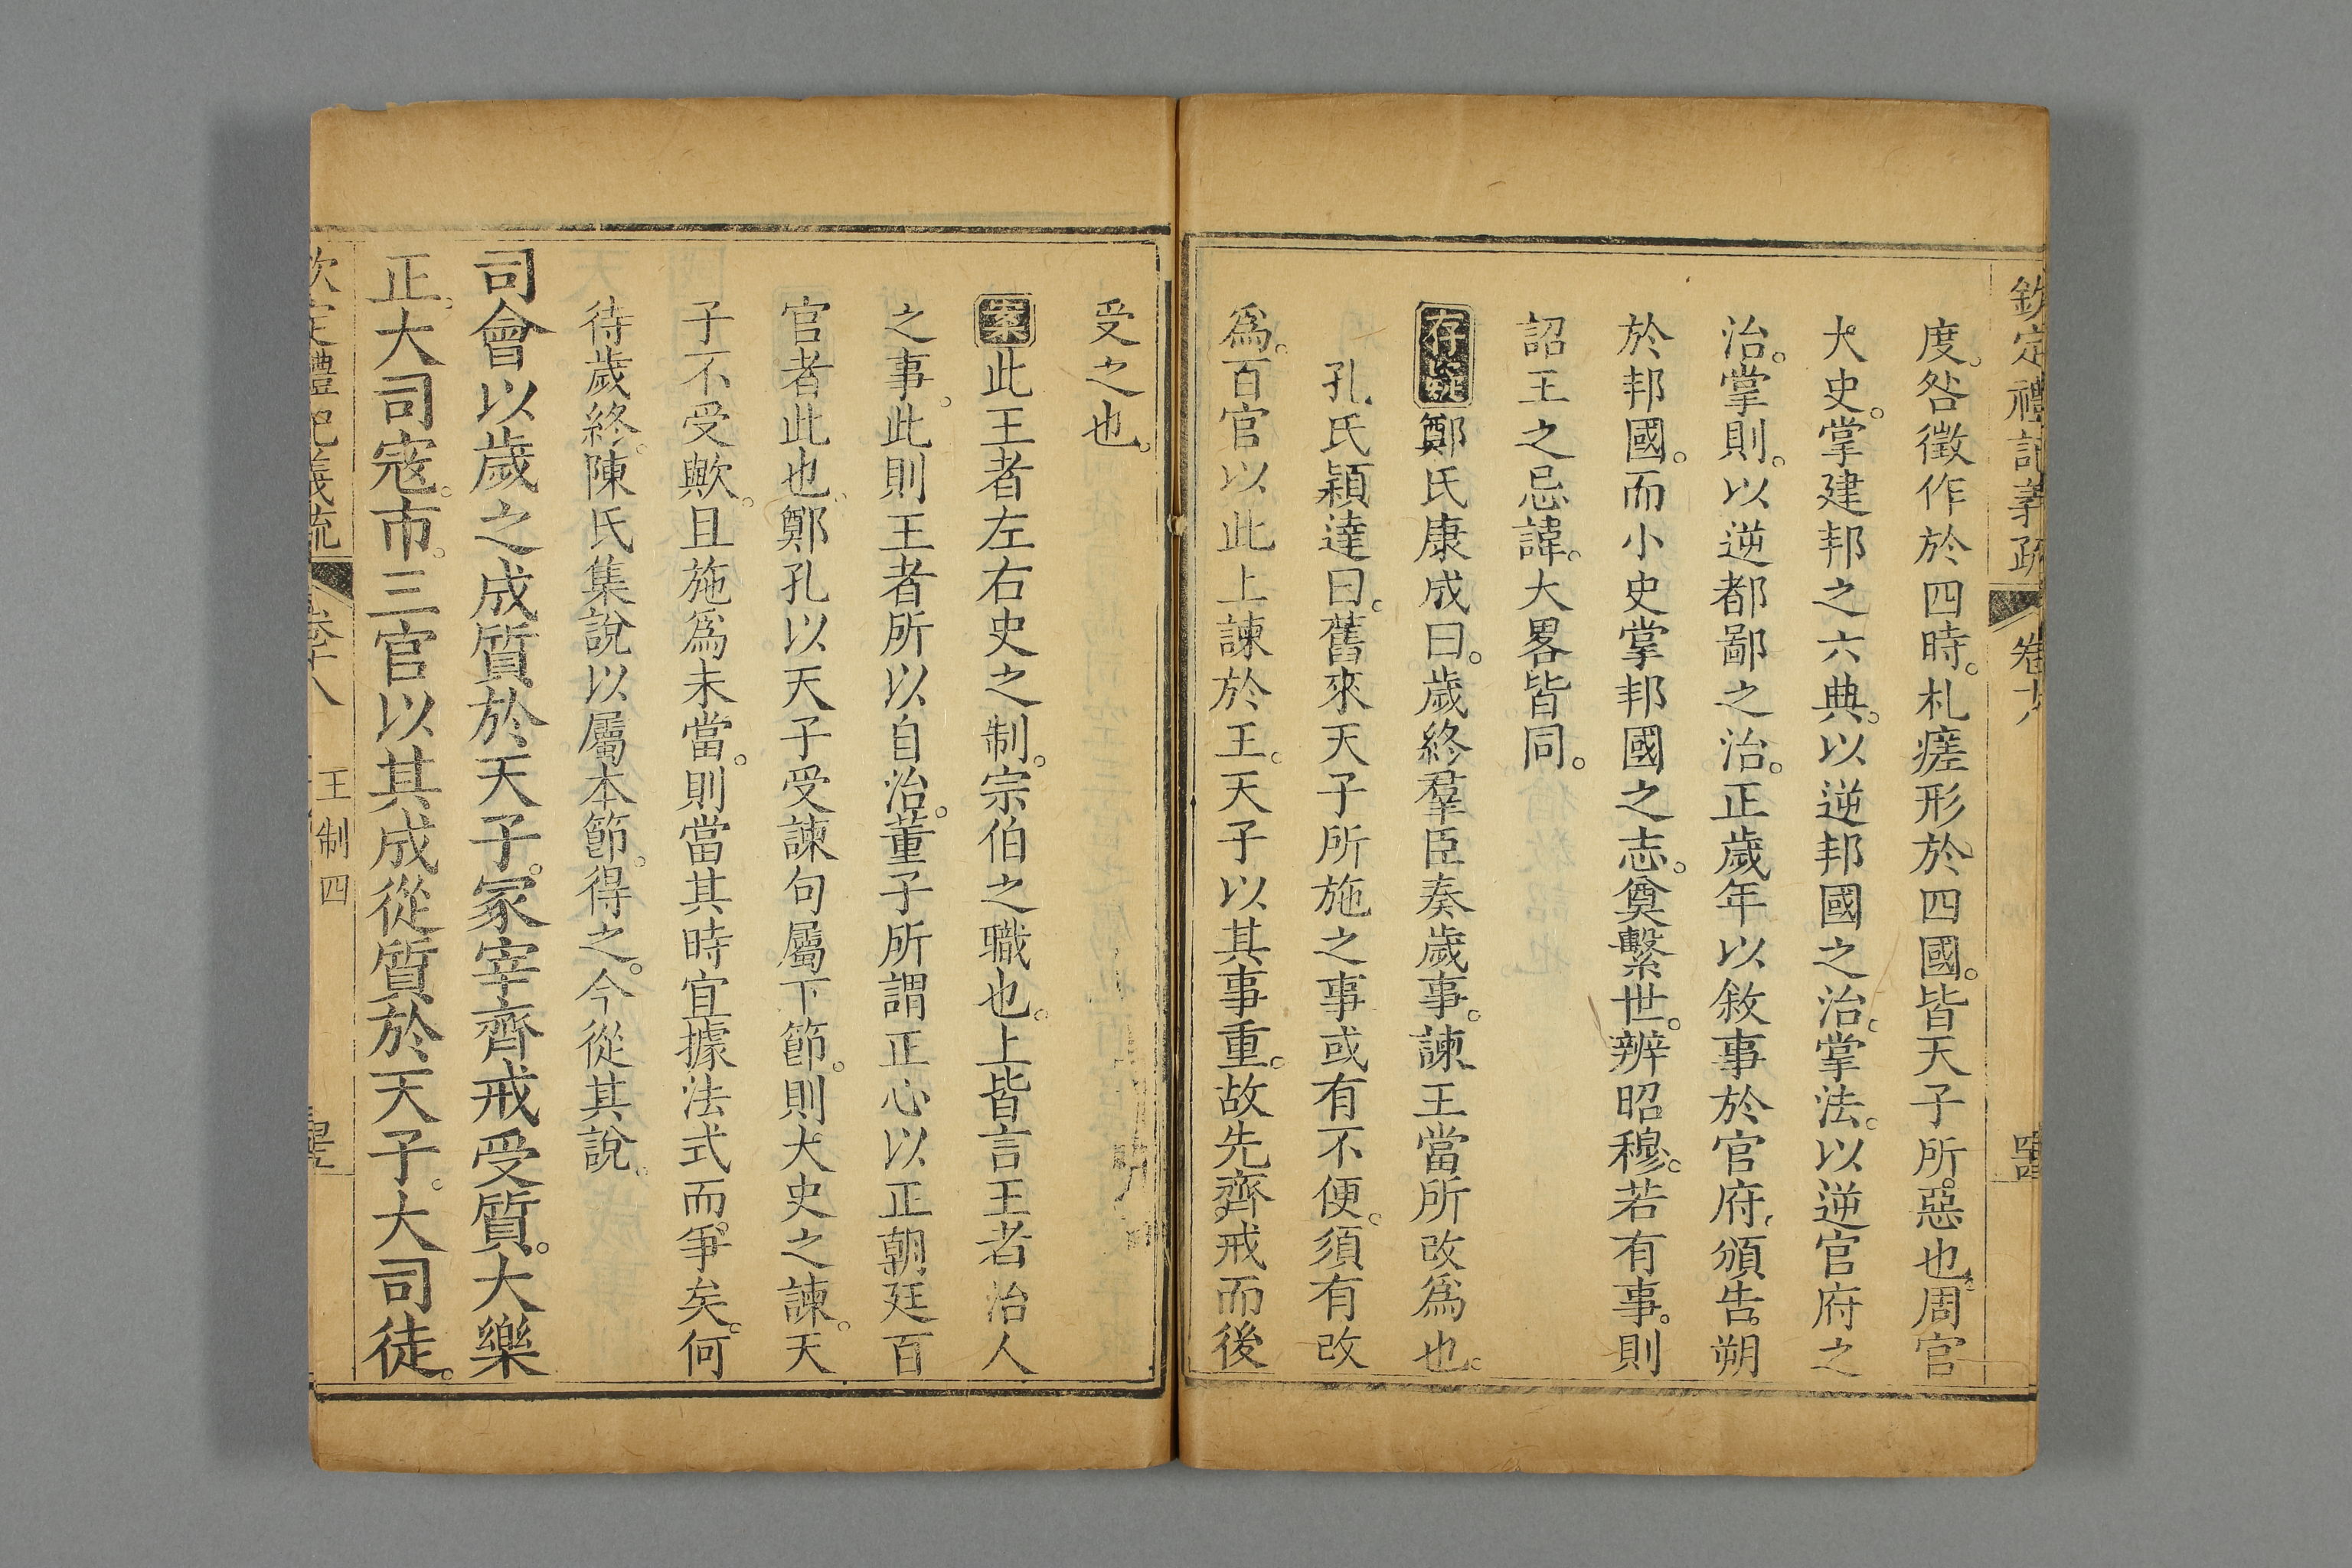 欽定禮記義疏 卷十八
度。咎徵作於四時。札瘥形於四國。皆天子所惡也。周官
大史。掌建邦之六典。以逆邦國之治。掌法。以逆官府之
治。掌則。以逆都鄙之治。正歲年以敘事於官府。頒告朔
於邦國。而小史掌邦國之志。奠繫世。辨昭穆。若有事。則
詔王之忌諱。大畧皆同。
存疑鄭氏康成曰。歲終羣臣奏歲事。諫王當所改爲也。
孔氏穎達曰。舊來天子所施之事或有不便。須有改
爲。百官以此上諫於王。天子以其事重。故先齊戒而後
受之也。
案此王者左右史之制。宗伯之職也。上皆言王者治人
之事。此則王者所以自治。董子所謂正心以正朝廷百
官者此也。鄭孔以天子受諫句屬下節。則大史之諫。天
子不受歟。且施爲未當。則當其時宜據法式而爭矣。何
待歲終。陳氏集說以屬本節。得之。今從其說。
司會以歲之成質於天子。冢宰齊戒受質。大樂
正。大司寇。市。三官以其成從質於天子。大司徒。
欽定禮記義疏 卷十八 王制四